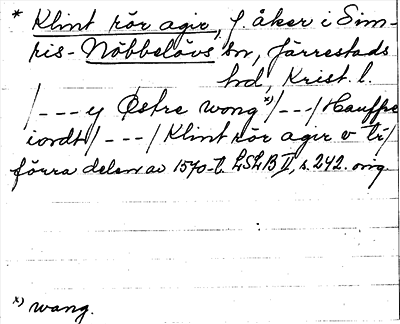 * Klint rör agir, f. åker i Sim-
ris-Nöbbelövs sn, Järrestads
hd, Krist. l.
/---y Østre wong x)/---/Hauffre
iordt/---/Klint rör agir v ti/
förra delen av 1570-t. LSLB II, s. 242. orig.
x) wang.